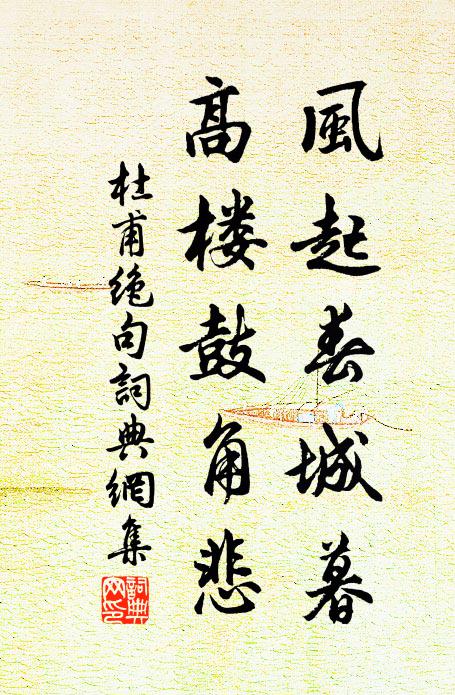 風起春城暮
高楼鼓角悲
杜甫绝句詞典網集
詞典
网印